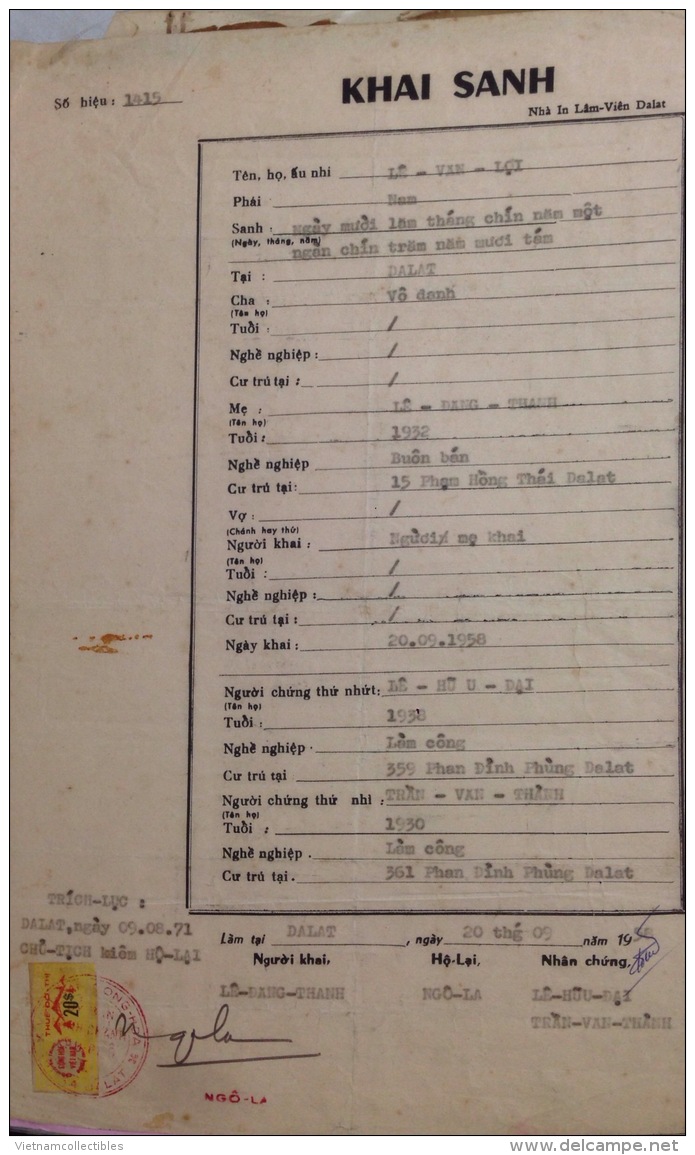 KHAI SANH
Số hiệu: 1415
Nhà In Lâm-Viên Dalat
Tên, họ, ấu nhi LÊ - VAN - LỢI
Phái Nam
Sanh: ngày mười lăm tháng chín năm một
(Ngày, tháng, năm) ngàn chín trăm năm mươi tám
Tại : DALAT
Cha : Vô danh
(Tên họ)
Tuổi : /
Nghề nghiệp: /
Cư trú tại : /
Mẹ : LÊ - DANG - THANH
(Tên họ)
Tuổi: 1932
Nghề nghiệp Buôn bán
Cư trú tại: 15 Phạm Hồng Thái Dalat
Vợ : /
(Chánh hay thứ)
Người khai : Người/ mẹ khai
(Tên họ)
Tuổi : /
Nghề nghiệp : /
Cư trú tại : /
Ngày khai : 20.09.1958
Người chứng thứ nhứt: LÊ - HỮU - ĐẠI
(Tên họ)
Tuổi : 1938
Nghề nghiệp . Làm công
Cư trú tại 359 Phan Đình Phùng Dalat
Người chứng thứ nhì : TRẦN - VAN - THÀNH
(Tên họ)
Tuổi : 1930
Nghề nghiệp . Làm công
Cư trú tại . 361 Phan Đình Phùng Dalat
TRÍCH-LỤC :
DALAT, ngày 09.08.71
CHỦ-TỊCH kiêm HỘ-LẠI
Làm tại DALAT , ngày 20 thg 09 năm 1958
Người khai, Hộ-Lại, Nhân chứng,
LÊ-DANG-THANH NGÔ-LA LÊ-HỮU-ĐẠI
TRẦN-VAN-THÀNH
20$
NGÔ-LA
Vietnamcollectibles
www.delcampe.net